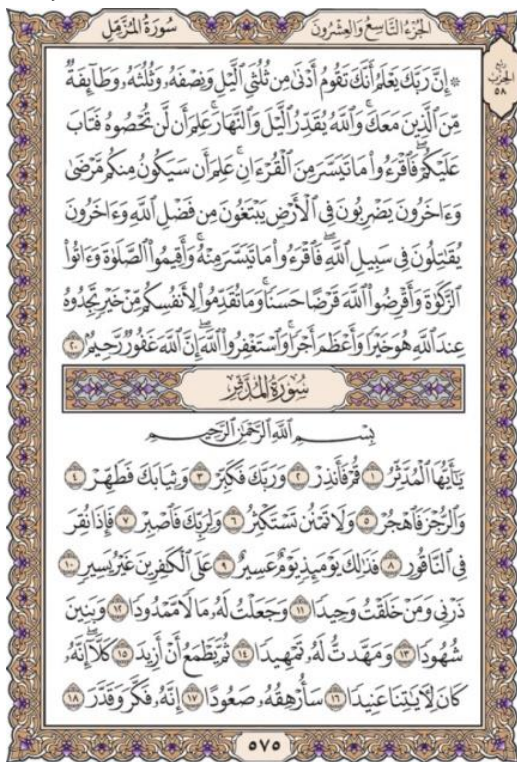 سُورَةُ المُزَّمِّل
الجُزْءُ التَّاسِعُ وَالعِشْرُونَ
رُبْع
الحِزْب
٥٨
۞ إِنَّ رَبَّكَ يَعْلَمُ أَنَّكَ تَقُومُ أَدْنَىٰ مِن ثُلُثَيِ ٱلَّيْلِ وَنِصْفَهُۥ وَثُلُثَهُۥ وَطَآئِفَةٌ
مِّنَ ٱلَّذِينَ مَعَكَۚ وَٱللَّهُ يُقَدِّرُ ٱلَّيْلَ وَٱلنَّهَارَۚ عَلِمَ أَن لَّن تُحْصُوهُ فَتَابَ
عَلَيْكُمْۖ فَٱقْرَءُوا۟ مَا تَيَسَّرَ مِنَ ٱلْقُرْءَانِۚ عَلِمَ أَن سَيَكُونُ مِنكُم مَّرْضَىٰ
وَءَاخَرُونَ يَضْرِبُونَ فِى ٱلْأَرْضِ يَبْتَغُونَ مِن فَضْلِ ٱللَّهِ وَءَاخَرُونَ
يُقَٰتِلُونَ فِى سَبِيلِ ٱللَّهِۖ فَٱقْرَءُوا۟ مَا تَيَسَّرَ مِنْهُۚ وَأَقِيمُوا۟ ٱلصَّلَوٰةَ وَءَاتُوا۟
ٱلزَّكَوٰةَ وَأَقْرِضُوا۟ ٱللَّهَ قَرْضًا حَسَنًاۚ وَمَا تُقَدِّمُوا۟ لِأَنفُسِكُم مِّنْ خَيْرٍ تَجِدُوهُ
عِندَ ٱللَّهِ هُوَ خَيْرًا وَأَعْظَمَ أَجْرًاۚ وَٱسْتَغْفِرُوا۟ ٱللَّهَۖ إِنَّ ٱللَّهَ غَفُورٌ رَّحِيمٌۢ ٢٠
سُورَةُ المُدَّثِّر
بِسْمِ ٱللَّهِ ٱلرَّحْمَٰنِ ٱلرَّحِيمِ
يَٰٓأَيُّهَا ٱلْمُدَّثِّرُ ١ قُمْ فَأَنذِرْ ٢ وَرَبَّكَ فَكَبِّرْ ٣ وَثِيَابَكَ فَطَهِّرْ ٤
وَٱلرُّجْزَ فَٱهْجُرْ ٥ وَلَا تَمْنُن تَسْتَكْثِرُ ٦ وَلِرَبِّكَ فَٱصْبِرْ ٧ فَإِذَا نُقِرَ
فِى ٱلنَّاقُورِ ٨ فَذَٰلِكَ يَوْمَئِذٍ يَوْمٌ عَسِيرٌ ٩ عَلَى ٱلْكَٰفِرِينَ غَيْرُ يَسِيرٍ ١٠
ذَرْنِى وَمَنْ خَلَقْتُ وَحِيدًا ١١ وَجَعَلْتُ لَهُۥ مَالًا مَّمْدُودًا ١٢ وَبَنِينَ
شُهُودًا ١٣ وَمَهَّدتُّ لَهُۥ تَمْهِيدًا ١٤ ثُمَّ يَطْمَعُ أَنْ أَزِيدَ ١٥ كَلَّآۖ إِنَّهُۥ
كَانَ لِءَايَٰتِنَا عَنِيدًا ١٦ سَأُرْهِقُهُۥ صَعُودًا ١٧ إِنَّهُۥ فَكَّرَ وَقَدَّرَ ١٨
٥٧٥